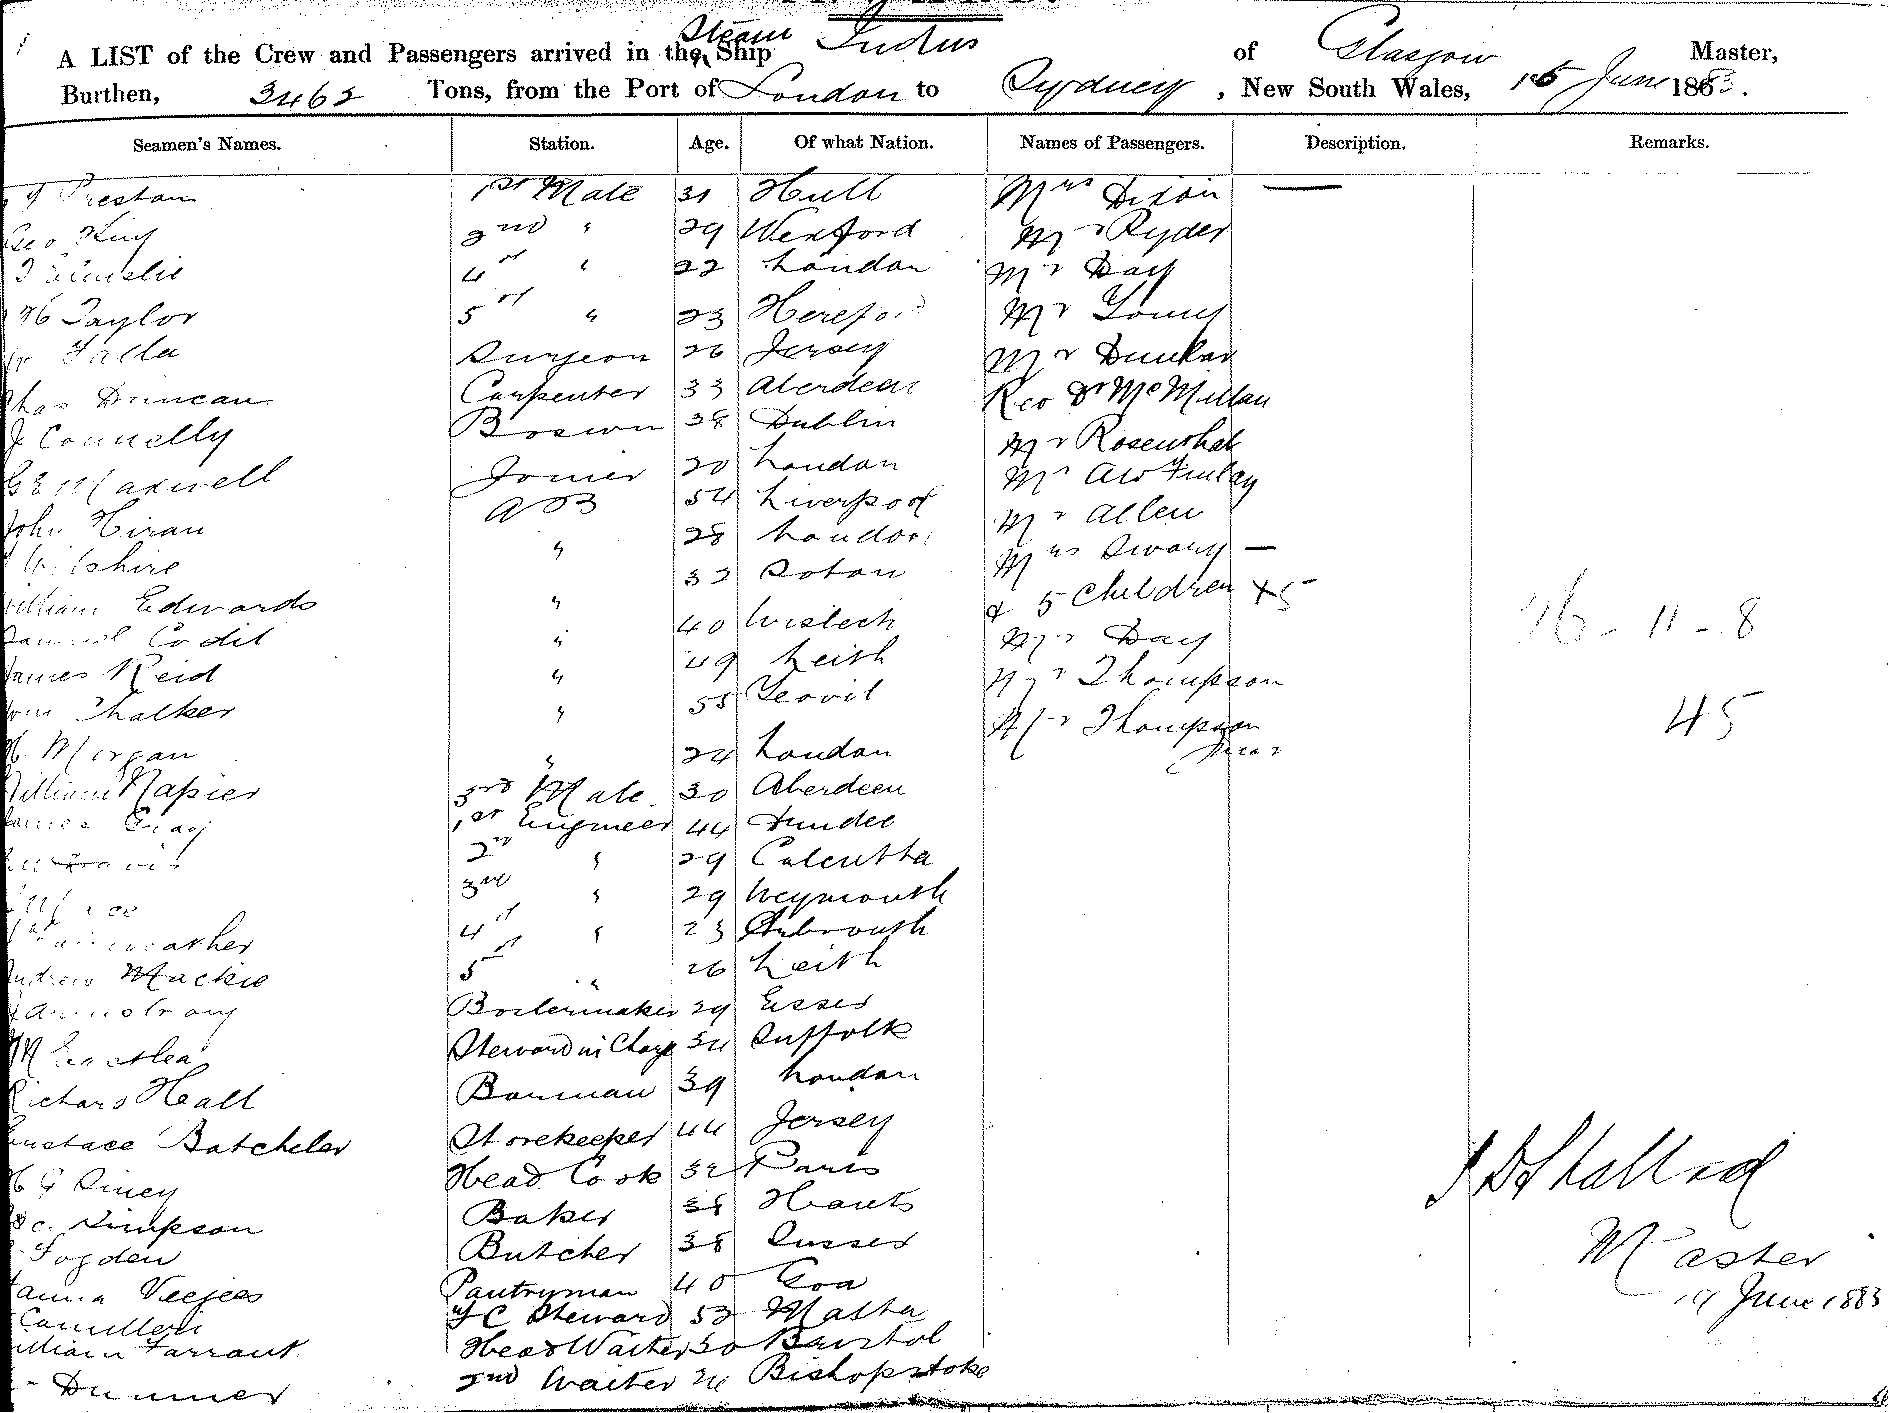 A LIST of the Crew and Passengers arrived in the Steam Ship Indus of Glasgow Master,
Burthen, 3462 Tons, from the Port of London to Sydney, New South Wales, 15 June 1883.
Seamen's Names. Station. Age. Of what Nation. Names of Passengers. Description. Remarks.
Preston 1st Mate 31 Hull Mrs Dixon —
Geo King 2nd " 29 Wexford Mr Ryder
4th " 22 London Mr Day
Taylor 5th " 23 Hereford Mr
Falla Surgeon 26 Jersey Mr Dunkar
Duncan Carpenter 33 Aberdeen Rev Dr McMillan
J Connelly Boswn 38 Dublin Mr Rosenthal
Maxwell Joiner 20 London Mr AW Finlay
John Hiran AB 54 Liverpool Mr Allen
Wilshire " 28 London Mrs —
William Edwards " 32 Soton & 5 Children + 5
Samuel Codit " 40 Wisbech Mr Day
James Reid " 49 Leith Mr Thompson
Chalker " 55 Yeovil Mr Thompson
Junr
Morgan " 24 London
William Napier 3rd Mate 30 Aberdeen
James Gray 1st Engineer 44 Dundee
2nd " 29 Calcutta
3rd " 29 Weymouth
Fairweather 4th " 23 Arbroath
Andrew Mackie 5th " 26 Leith
Armstrong Boilermaker 29 Essex
Steward in Charge 34 Suffolk
Richard Heall Barman 39 London
Eustace Batchelor Storekeeper 44 Jersey
Head Cook 32 Paris
Simpson Baker 38 Hants
Fogden Butcher 38 Sussex
Pantryman 40 Goa
Camilleri Steward 53 Malta
William Farrant Head Waiter 30 Bristol
2nd Waiter 24 Bishopstoke
76 - 11 - 8
45
Master
19 June 1883